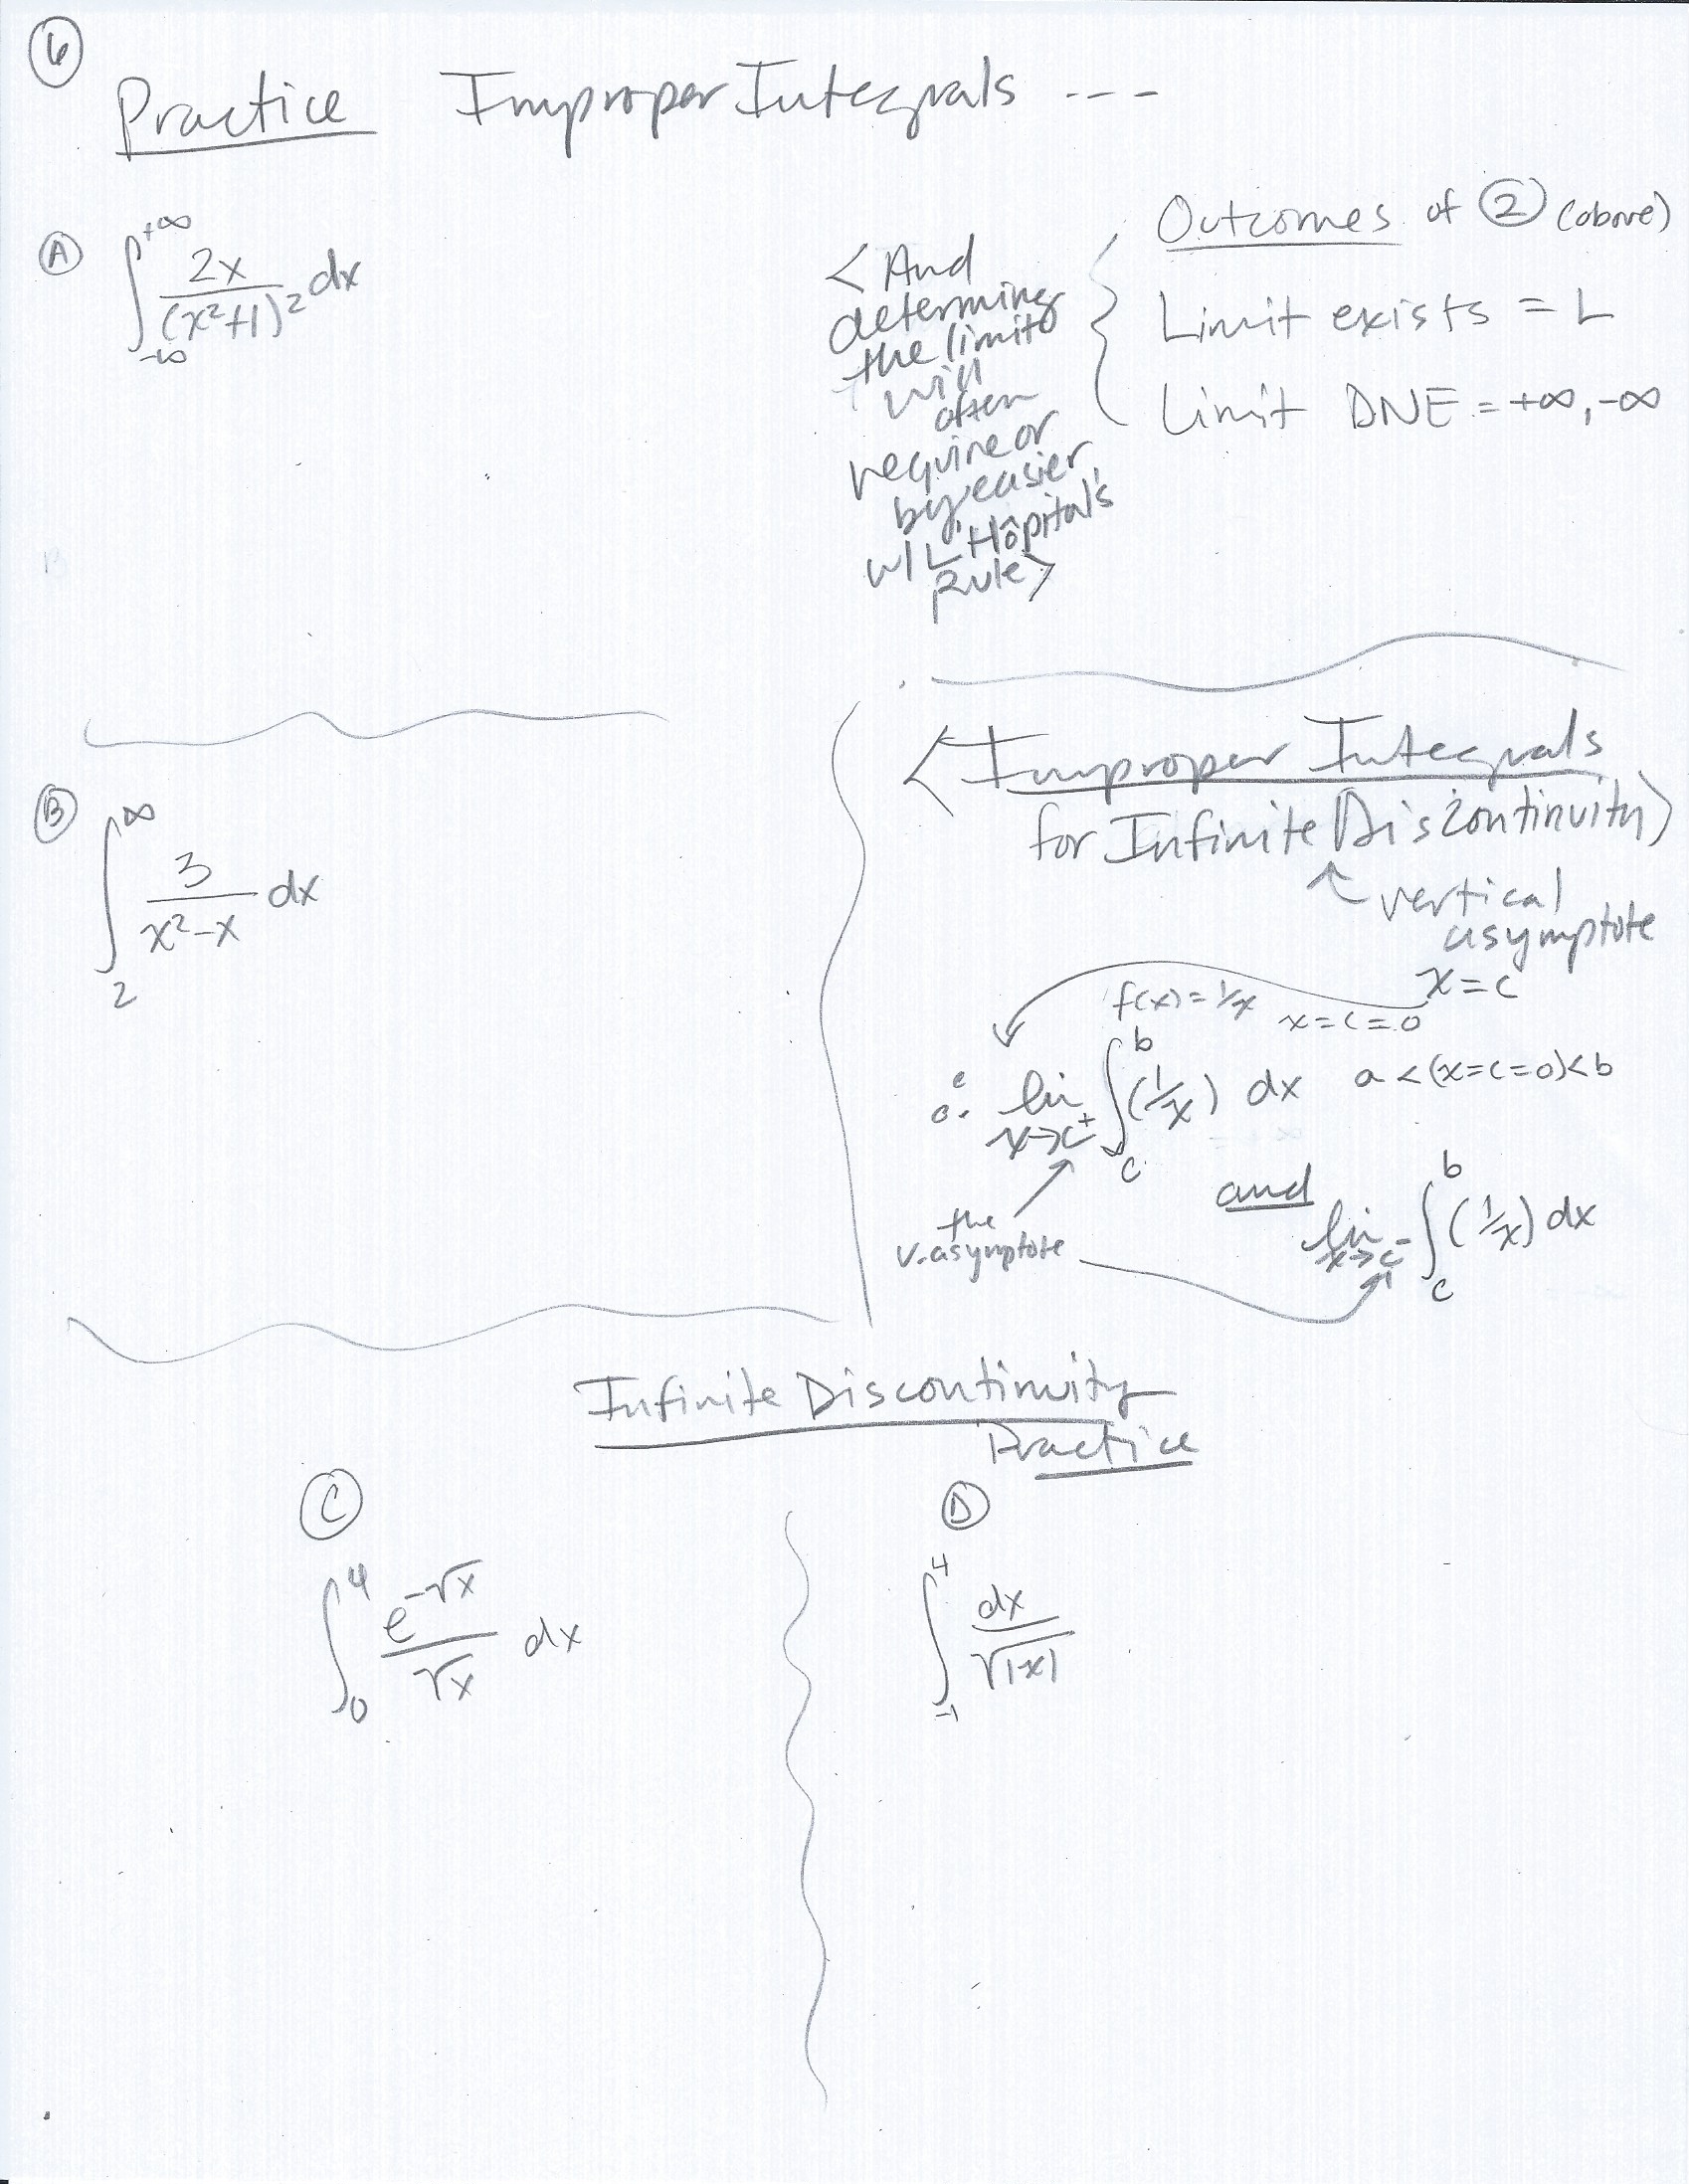 6
Practice Improper Integrals ---
A ∫_{-∞}^{+∞} 2x/(x²+1)² dx
<And
determining
the limit
will
often
require or
by easier
w/ L'Hôpital's
Rule>
Outcomes of ② (above)
Limit exists = L
Limit DNE = +∞, -∞
B ∫_2^∞ 3/(x²-x) dx
<Improper Integrals
for Infinite Discontinuity>
vertical
asymptote
x = c
f(x) = 1/x x = c = 0
∴ lim_{x→c⁺} ∫_c^b (1/x) dx a < (x=c=0) < b
and lim_{x→c⁻} ∫_c^b (1/x) dx
the
v. asymptote
Infinite Discontinuity
Practice
C
∫_0^4 e^{-√x}/√x dx
D
∫_{-1}^4 dx/√|x|